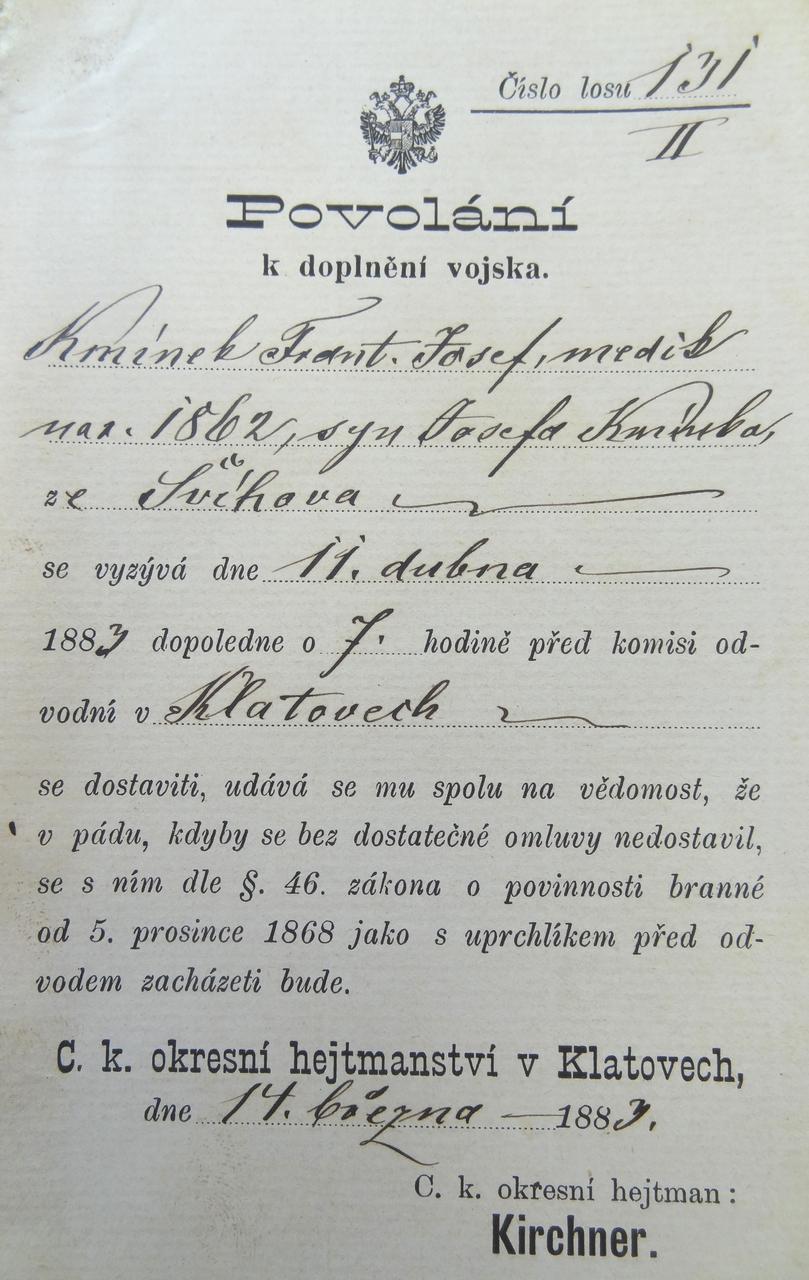 Číslo losu 131
II
Povolání
k doplnění vojska.
Kmínek Frant. Josef, medik
nar. 1862, syn Josefa Kmínka,
ze Švíhova
se vyzývá dne 11. dubna
1883 dopoledne o 7. hodině před komisi od-
vodní v Klatovech
se dostaviti, udává se mu spolu na vědomost, že
v pádu, kdyby se bez dostatečné omluvy nedostavil,
se s ním dle §. 46. zákona o povinnosti branné
od 5. prosince 1868 jako s uprchlíkem před od-
vodem zacházeti bude.
C. k. okresní hejtmanství v Klatovech,
dne 14. března 1883.
C. k. okresní hejtman:
Kirchner.